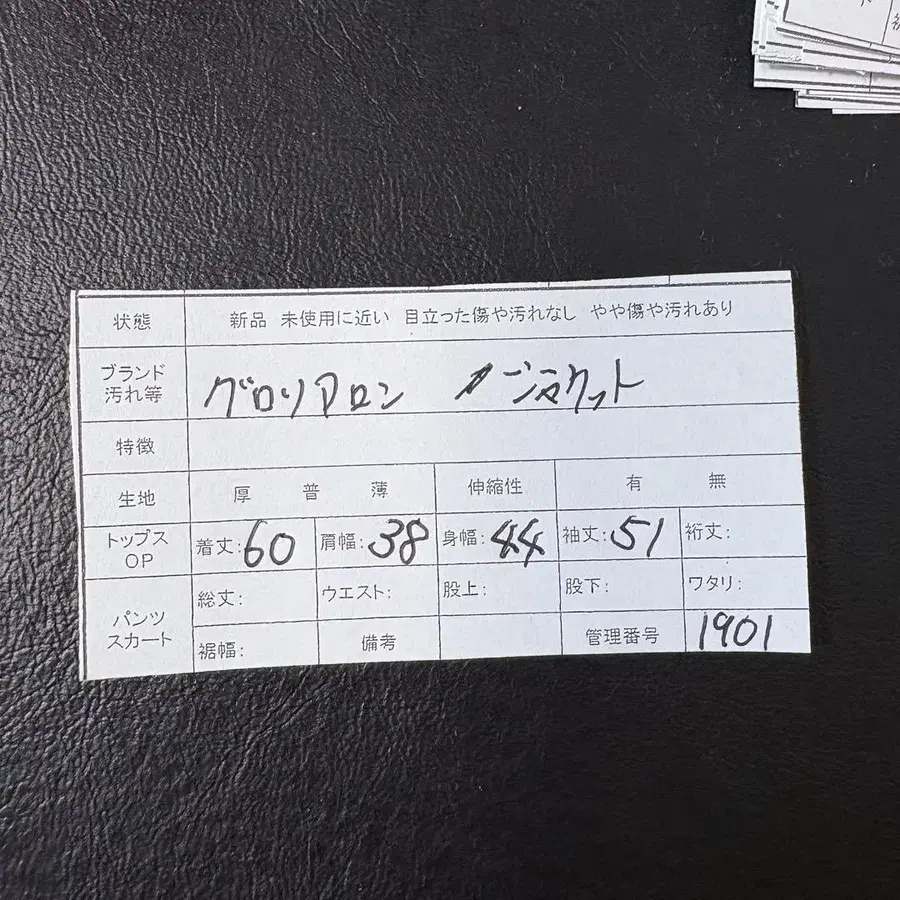 状態 新品 未使用に近い 目立った傷や汚れなし やや傷や汚れあり
ブランド
汚れ等 グロリアロン ジャケット
特徴
生地 厚 普 薄 伸縮性 有 無
トップス
OP 着丈:60 肩幅:38 身幅:44 袖丈:51 裄丈:
パンツ
スカート 総丈: ウエスト: 股上: 股下: ワタリ:
裾幅: 備考 管理番号 1901